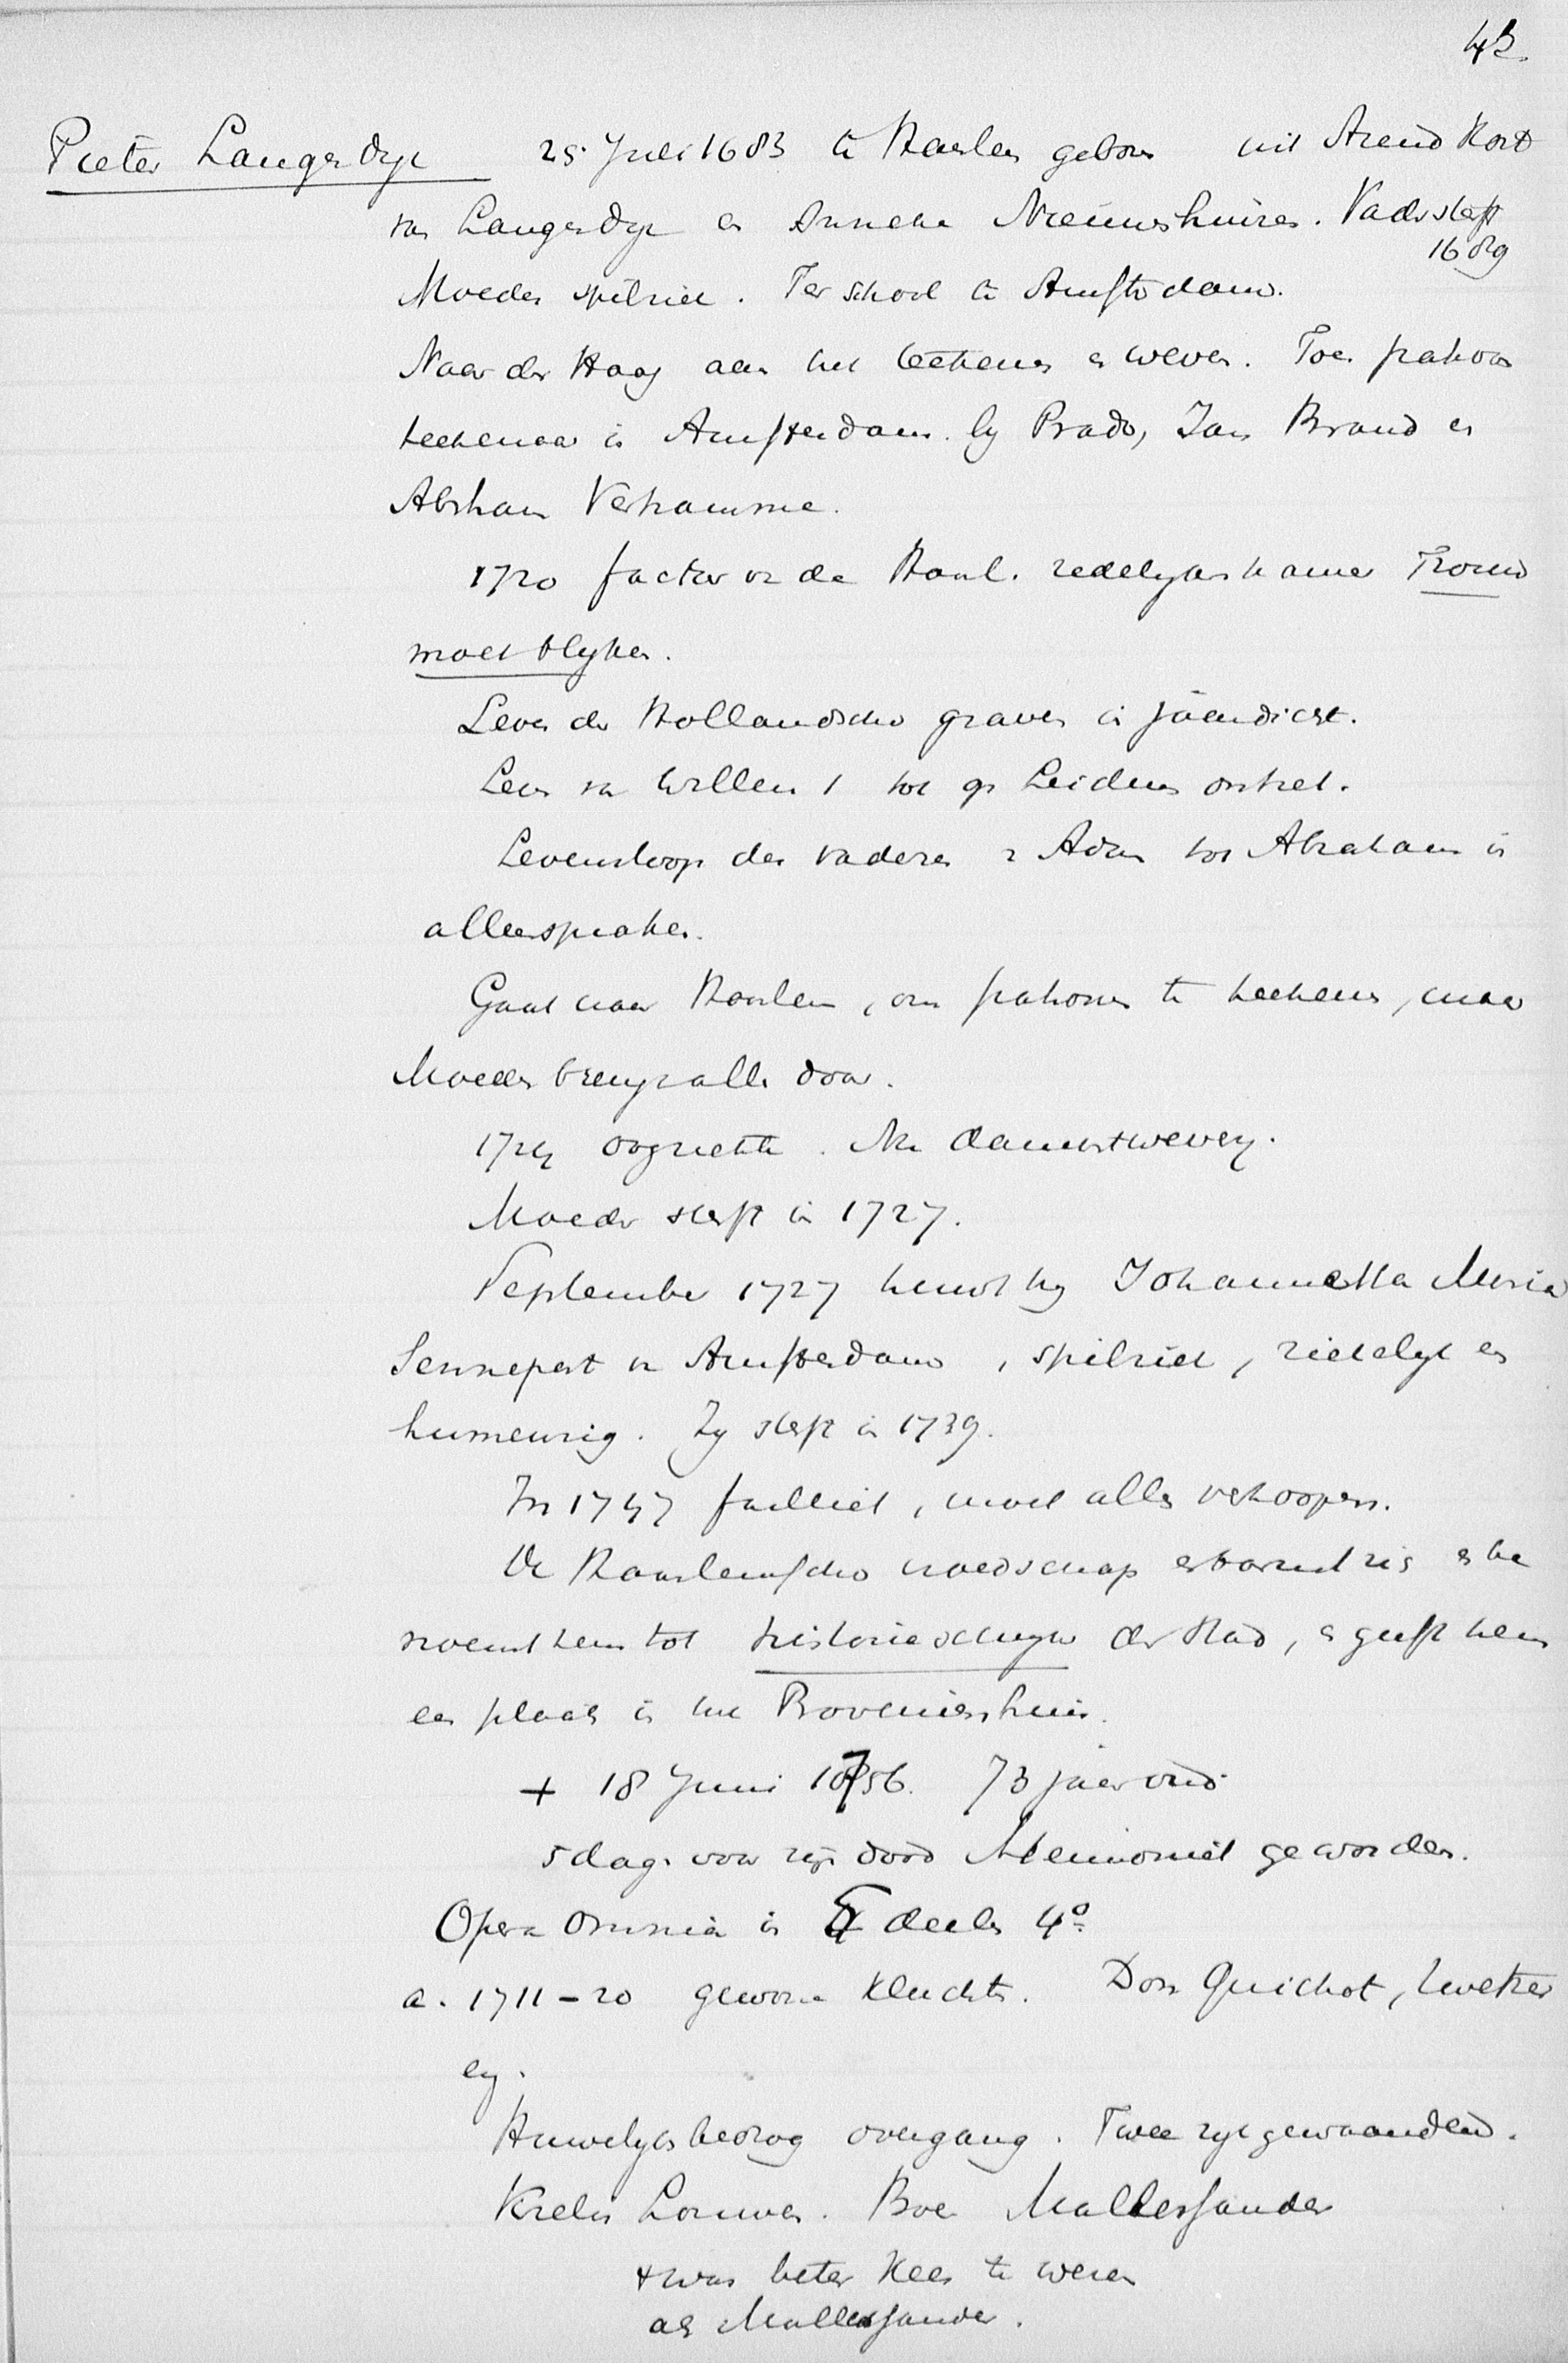 43.
Pieter Langendyk 25 Juli 1683 te Haarlem geboren uit Arend Kort
van Langendyk en Anneke Nieuwenhuizen. Vader sterft
1689
Moeder spilziek. Ter school te Amsterdam.
Naar den Haag aan het teekenen en weven. Toen patroon
teekenaar in Amsterdam. by Prado, Jan Brand en
Abraham Verhamme.
1720 factor van de Haarl. rederykerskamer Trouw
moet blyken.
Leven der Hollandsche graven in puntdicht.
Leven van Willem I tot op Leidens ontzet.
Levensloop der vaderen v Adam tot Abraham in
alleenspraken.
Gaat naar Haarlem, om patronen te teekenen, maar
Moeder brengt alles door.
opgerichtte damastwevery.
Moeder sterft in 1727.
September 1727 huwt hy Johannetta Maria
Sennepart van Amsterdam, spilziek, ziekelyk en
humeurig. Zy sterft in 1739.
In 1747 failliet, moet alles verkoopen.
De Haarlemsche vroedschap erbarmt zich en be
noemt hem tot historieschryver der stad, en geeft hem
een plaats in het Proveniershuis.
+ 18 Juni 1756. 73 jaar oud.
5 dagen voor zyn dood Mennoniet geworden.
Opera Omnia in deelen 4º
a. 1711-20 gewone kluchten. Don Quichot, Zwetser
ey.
Huwelyksbedrog overgang. Twee zyn gewaanden.
Krelis Louwen. Boer Mallexander
t was beter Kees te wezen
als Mallexander.